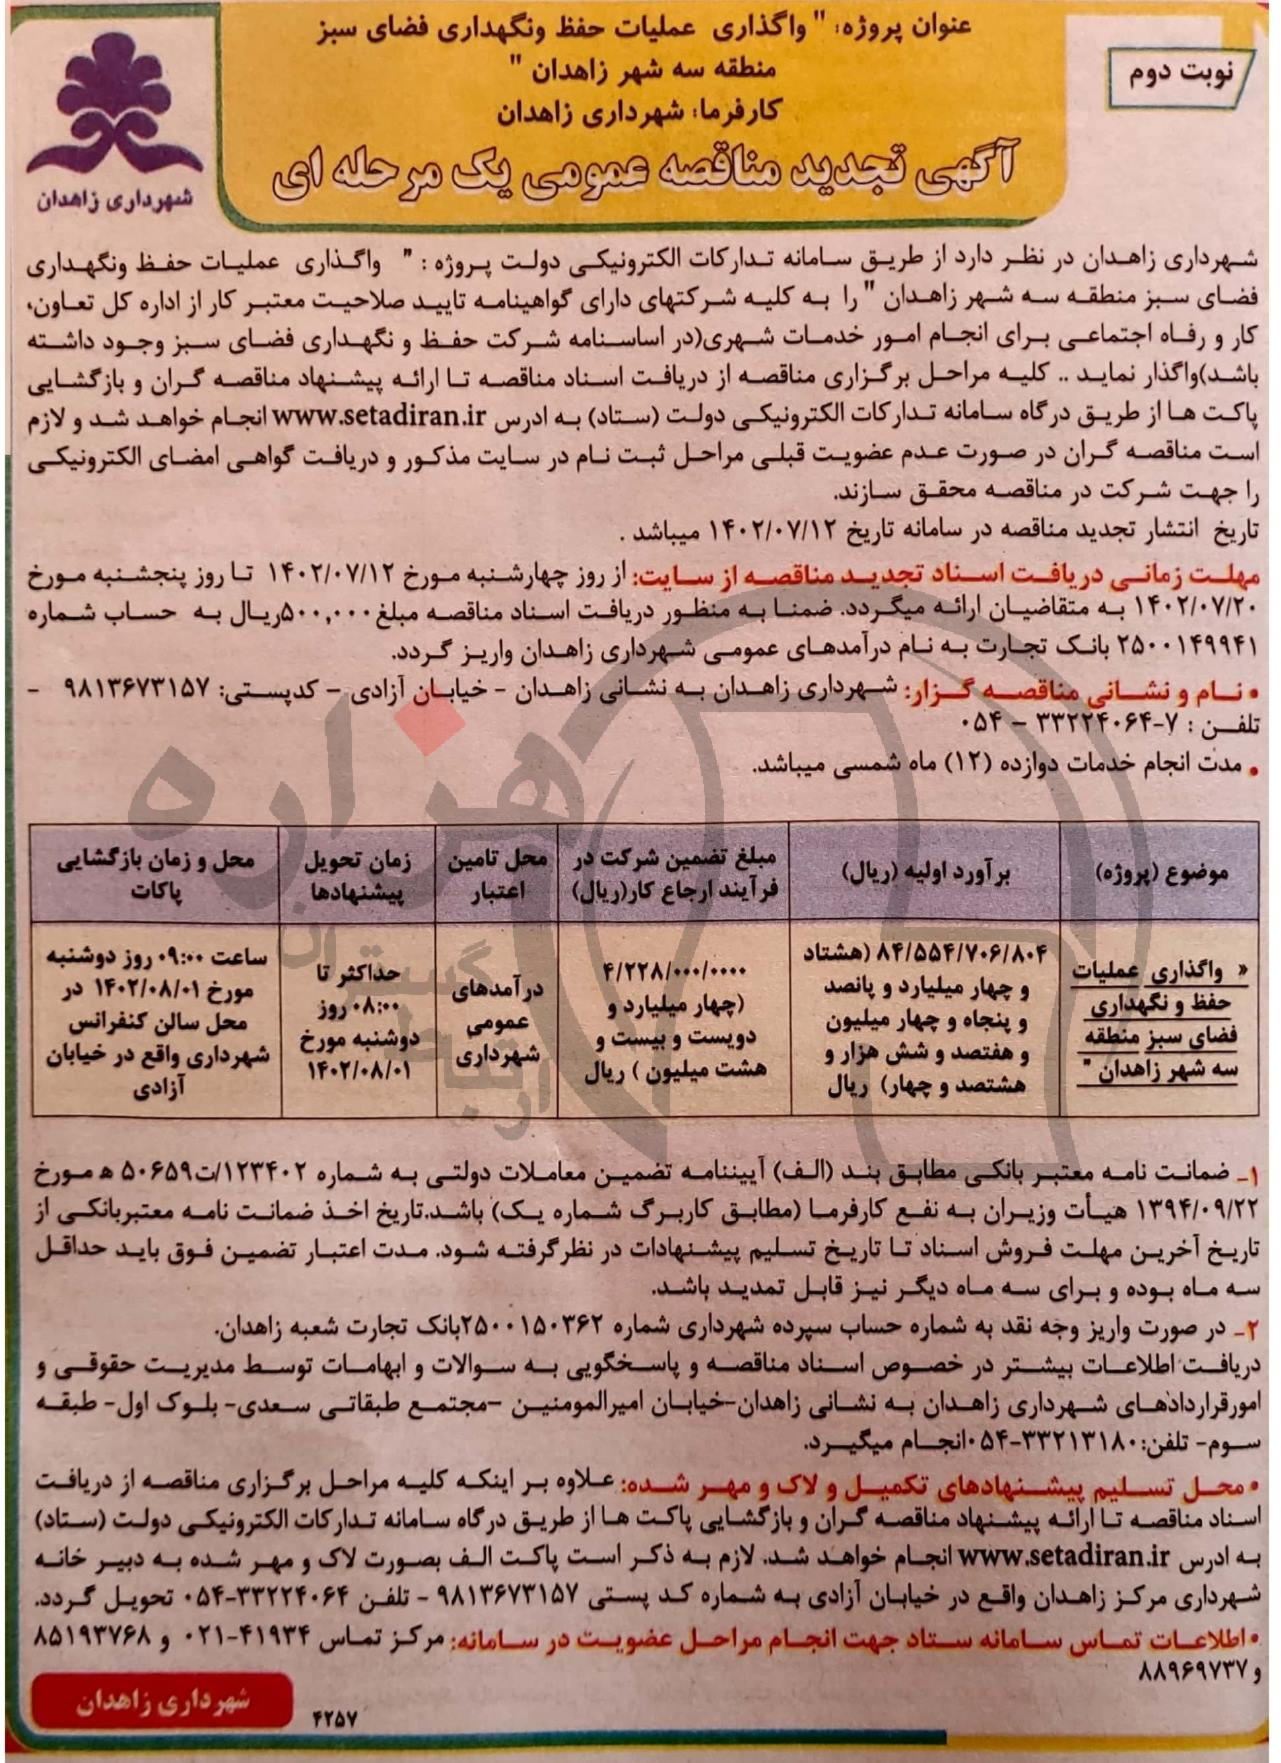 عنوان پروژه: " واگذاری عملیات حفظ ونگهداری فضای سبز
منطقه سه شهر زاهدان "
کارفرما: شهرداری زاهدان
آگهی تجدید مناقصه عمومی یک مرحله ای
نوبت دوم
شهرداری زاهدان
شهرداری زاهدان در نظر دارد از طریق سامانه تدارکات الکترونیکی دولت پروژه : " واگذاری عملیات حفظ ونگهداری
فضای سبز منطقه سه شهر زاهدان " را به کلیه شرکتهای دارای گواهینامه تایید صلاحیت معتبر کار از اداره کل تعاون،
کار و رفاه اجتماعی برای انجام امور خدمات شهری(در اساسنامه شرکت حفظ و نگهداری فضای سبز وجود داشته
باشد)واگذار نماید .. کلیه مراحل برگزاری مناقصه از دریافت اسناد مناقصه تا ارائه پیشنهاد مناقصه گران و بازگشایی
پاکت ها از طریق درگاه سامانه تدارکات الکترونیکی دولت (ستاد) به ادرس www.setadiran.ir انجام خواهد شد و لازم
است مناقصه گران در صورت عدم عضویت قبلی مراحل ثبت نام در سایت مذکور و دریافت گواهی امضای الکترونیکی
را جهت شرکت در مناقصه محقق سازند.
تاریخ انتشار تجدید مناقصه در سامانه تاریخ ۱۴۰۲/۰۷/۱۲ میباشد .
مهلت زمانی دریافت اسناد تجدید مناقصه از سایت: از روز چهارشنبه مورخ ۱۴۰۲/۰۷/۱۲ تا روز پنجشنبه مورخ
۱۴۰۲/۰۷/۲۰ به متقاضیان ارائه میگردد. ضمنا به منظور دریافت اسناد مناقصه مبلغ۵۰۰,۰۰۰ریال به حساب شماره
۲۵۰۰۱۴۹۹۴۱ بانک تجارت به نام درآمدهای عمومی شهرداری زاهدان واریز گردد.
• نام و نشانی مناقصه گزار: شهرداری زاهدان به نشانی زاهدان - خیابان آزادی - کدپستی: ۹۸۱۳۶۷۳۱۵۷ -
تلفن : ۷-۳۳۲۲۴۰۶۴ - ۰۵۴
• مدت انجام خدمات دوازده (۱۲) ماه شمسی میباشد.
موضوع (پروژه)
برآورد اولیه (ریال)
مبلغ تضمین شرکت در
فرآیند ارجاع کار(ریال)
محل تامین
اعتبار
زمان تحویل
پیشنهادها
محل و زمان بازگشایی
پاکات
« واگذاری عملیات
حفظ و نگهداری
فضای سبز منطقه
سه شهر زاهدان "
۸۴/۵۵۴/۷۰۶/۸۰۴ (هشتاد
و چهار میلیارد و پانصد
و پنجاه و چهار میلیون
و هفتصد و شش هزار و
هشتصد و چهار) ریال
۴/۲۲۸/۰۰۰/۰۰۰۰
(چهار میلیارد و
دویست و بیست و
هشت میلیون ) ریال
درآمدهای
عمومی
شهرداری
حداکثر تا
۰۸:۰۰ روز
دوشنبه مورخ
۱۴۰۲/۰۸/۰۱
ساعت ۰۹:۰۰ روز دوشنبه
مورخ ۱۴۰۲/۰۸/۰۱ در
محل سالن کنفرانس
شهرداری واقع در خیابان
آزادی
۱- ضمانت نامه معتبر بانکی مطابق بند (الف) آییننامه تضمین معاملات دولتی به شماره ۱۲۳۴۰۲/ت۵۰۶۵۹ ه مورخ
۱۳۹۴/۰۹/۲۲ هیأت وزیران به نفع کارفرما (مطابق کاربرگ شماره یک) باشد.تاریخ اخذ ضمانت نامه معتبربانکی از
تاریخ آخرین مهلت فروش اسناد تا تاریخ تسلیم پیشنهادات در نظرگرفته شود. مدت اعتبار تضمین فوق باید حداقل
سه ماه بوده و برای سه ماه دیگر نیز قابل تمدید باشد.
۲- در صورت واریز وجه نقد به شماره حساب سپرده شهرداری شماره ۲۵۰۰۱۵۰۳۶۲بانک تجارت شعبه زاهدان.
دریافت اطلاعات بیشتر در خصوص اسناد مناقصه و پاسخگویی به سوالات و ابهامات توسط مدیریت حقوقی و
امورقراردادهای شهرداری زاهدان به نشانی زاهدان-خیابان امیرالمومنین -مجتمع طبقاتی سعدی- بلوک اول- طبقه
سوم- تلفن:۳۳۲۱۳۱۸۰-۰۵۴انجام میگیرد.
• محل تسلیم پیشنهادهای تکمیل و لاک و مهر شده: علاوه بر اینکه کلیه مراحل برگزاری مناقصه از دریافت
اسناد مناقصه تا ارائه پیشنهاد مناقصه گران و بازگشایی پاکت ها از طریق درگاه سامانه تدارکات الکترونیکی دولت (ستاد)
به ادرس www.setadiran.ir انجام خواهد شد. لازم به ذکر است پاکت الف بصورت لاک و مهر شده به دبیر خانه
شهرداری مرکز زاهدان واقع در خیابان آزادی به شماره کد پستی ۹۸۱۳۶۷۳۱۵۷ - تلفن ۳۳۲۲۴۰۶۴-۰۵۴ تحویل گردد.
• اطلاعات تماس سامانه ستاد جهت انجام مراحل عضویت در سامانه: مرکز تماس ۴۱۹۳۴-۰۲۱ و ۸۵۱۹۳۷۶۸
و ۸۸۹۶۹۷۳۷
شهرداری زاهدان
۴۲۵۷
هزاره